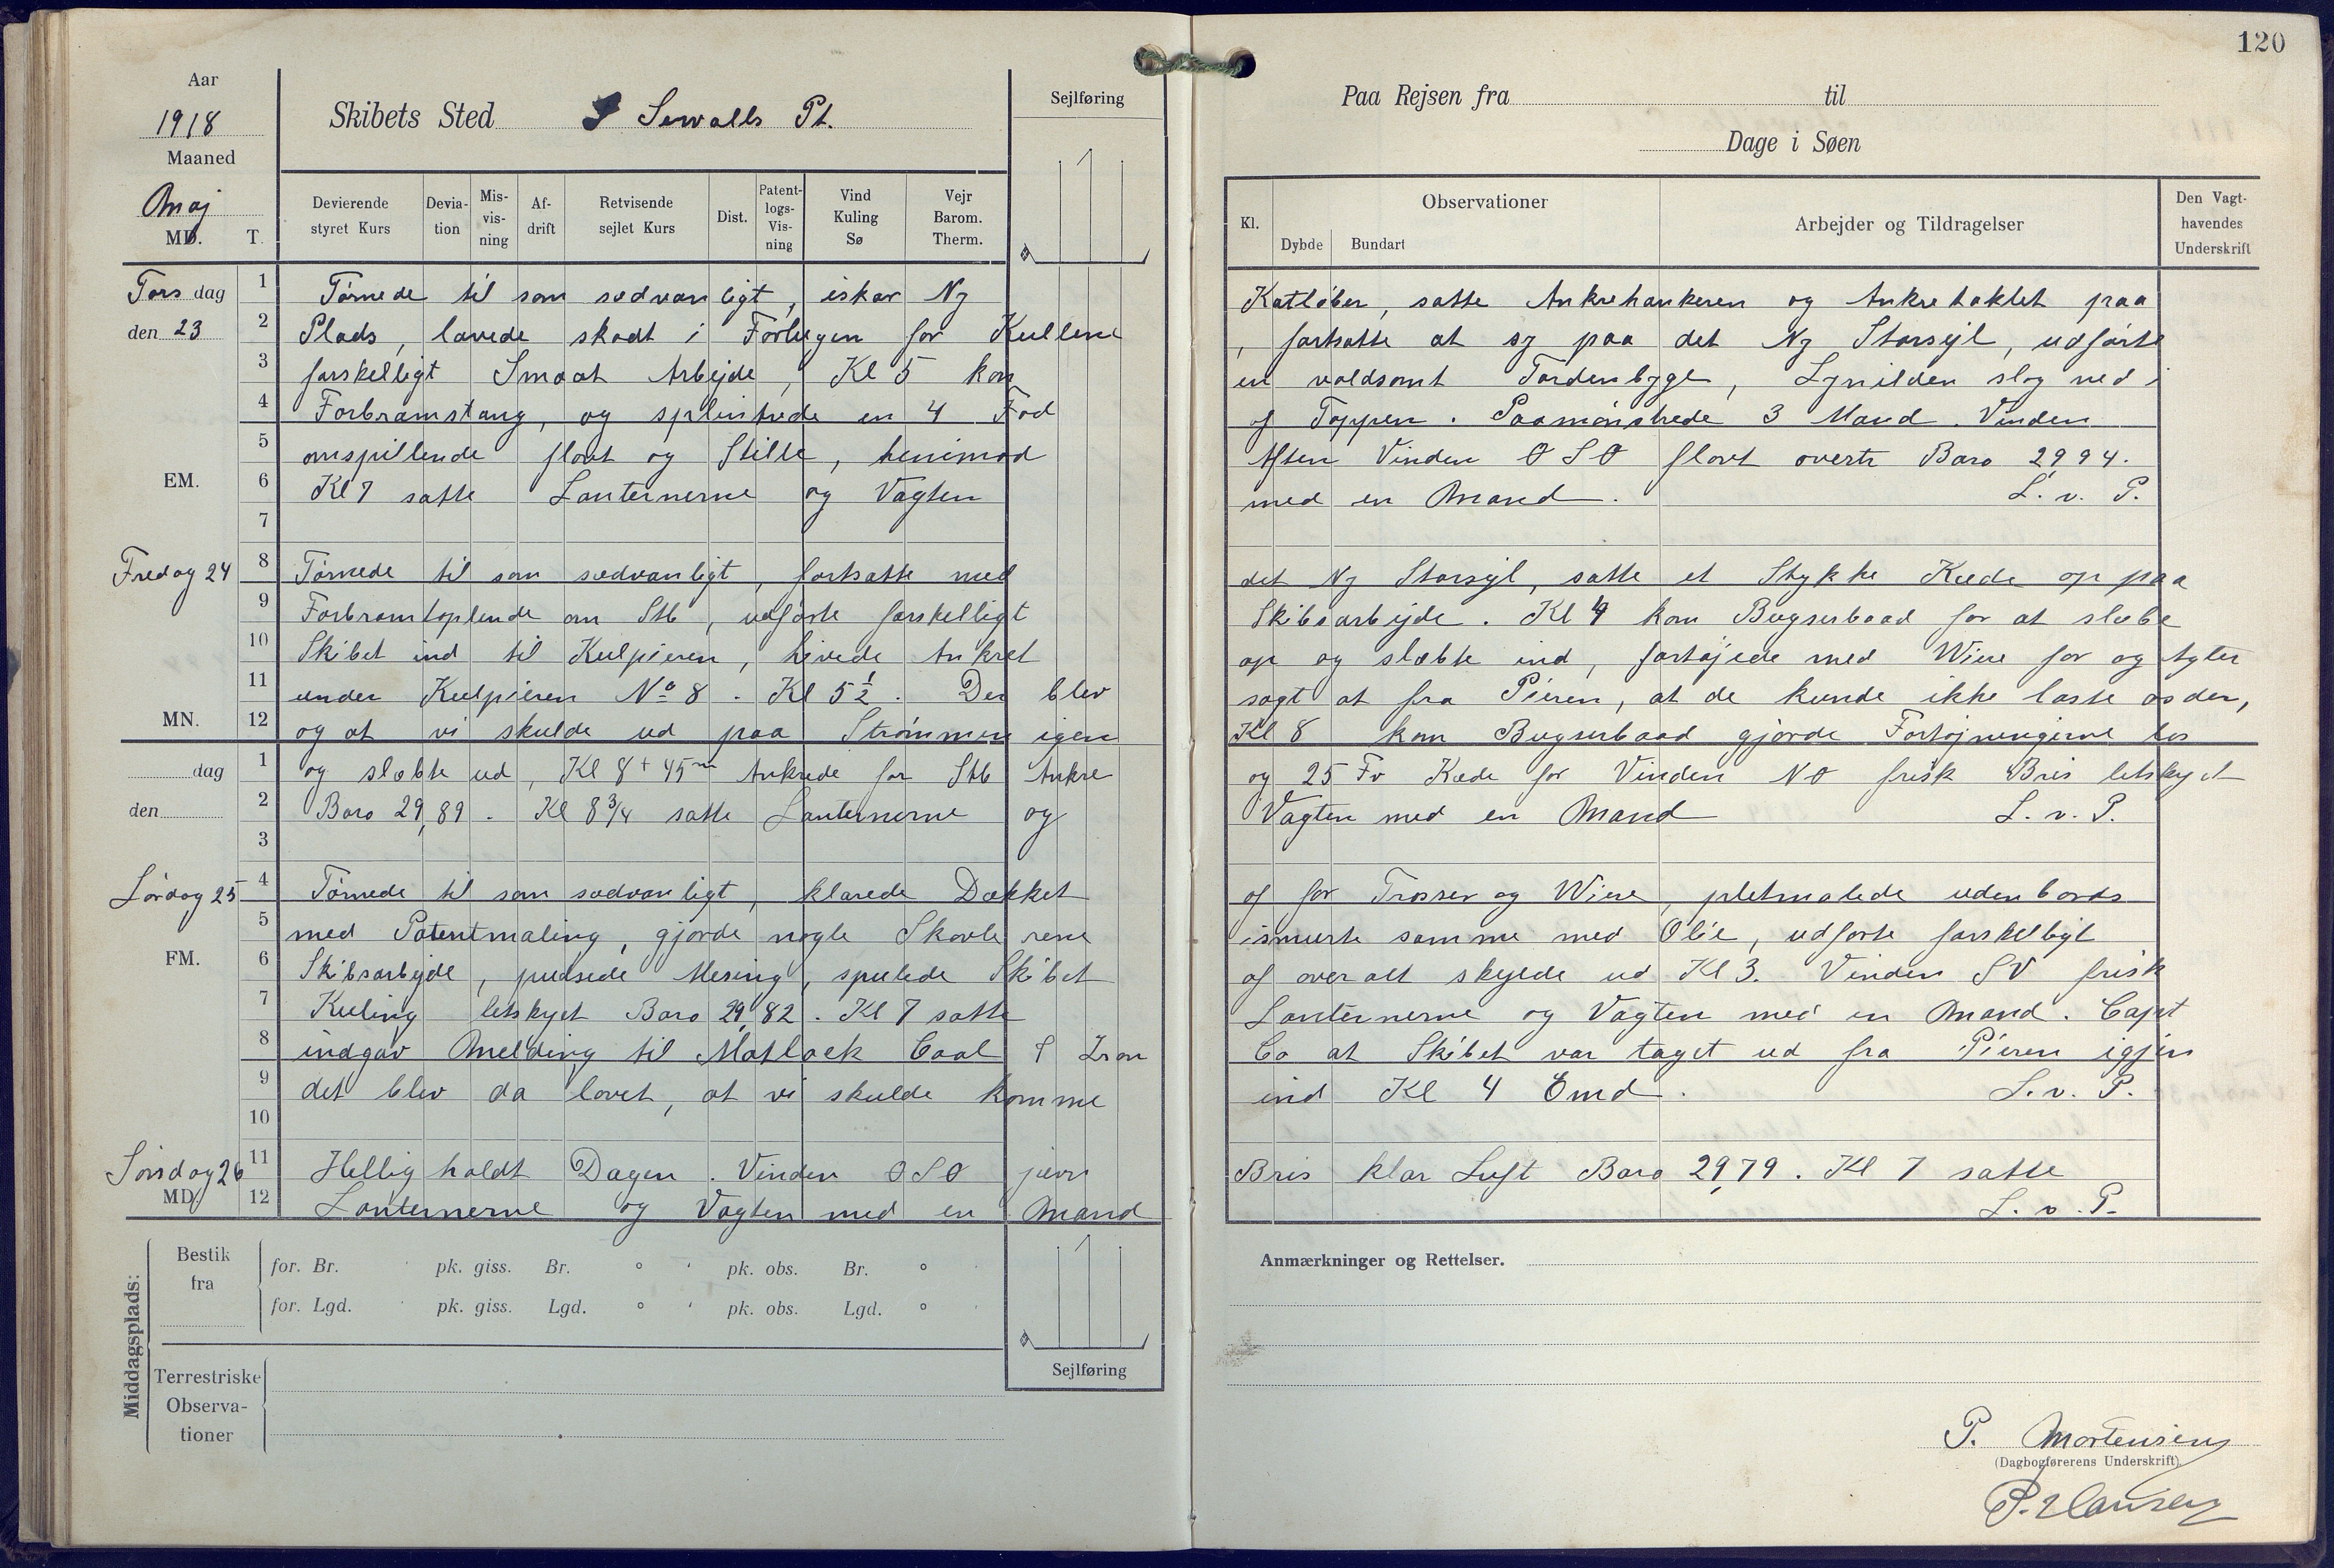 120
Aar
1918
Maaned
Maj
MD. T.
Skibets Sted Sewalls Pt.
Sejlføring
Paa Rejsen fra til
Dage i Søen
Devierende styret Kurs
Devia-tion
Mis-vis-ning
Af-drift
Retvisende sejlet Kurs
Dist.
Patent-logs-Vis-ning
Vind Kuling Sø
Vejr Barom. Therm.
Kl.
Observationer
Dybde Bundart
Arbejder og Tildragelser
Den Vagt-havendes Underskrift
Torsdag 1 Tørnede til som sædvanligt, iskar Ny Katløber, satte Ankrehankeren og Ankretaklet paa
den 23 2 Plads, lavede skodt i Forlugen for Kullene, fortsatte at sy paa det Ny Storsejl, udførte
3 forskelligt Smaat Arbejde, Kl 5 kom en voldsomt Tordenbyge, Lynilden slog ned i
4 Forbramstang, og splintrede en 4 Fod af Toppen. Paamønstrede 3 Mand. Vinden
5 omspillende flovt og Stille, henimod Aften Vinden OSO flovt overtr Baro 29,94.
EM. 6 Kl 7 satte Lanternerne og Vagten med en Mand. L. v. P.
7
Fredag 24 8 Tørnede til som sædvanligt, fortsatte med det Ny Storsejl, satte et Stykke Kæde op paa
9 Forbramtoplende om Stb, udførte forskelligt Skibsarbejde. Kl 4 kom Bugserbaad for at slæbe
10 Skibet ind til Kulpieren, hivede Ankret op og slæbte ind, fortøjede med Wire for og Agter
11 under Kulpieren No 8. Kl 5½. Der blev sagt at fra Pieren, at de kunde ikke laste os der,
MN. 12 og at vi skulde ud paa Strømmen igen Kl 8 kom Bugserbaad gjorde Fortøjningerne los
dag 1 og slæbte ud, Kl 8 + 45m Ankrede for Stb Ankre og 25 Fv Kæde for Vinden NO frisk Bris letskyet
den 2 Baro 29,89. Kl 8¾ satte Lanternerne og Vagten med en Mand L. v. P.
3
Lørdag 25 4 Tørnede til som sædvanligt, klarede Dækket af for Trosser og Wire, pletmalede udenbords
5 med Patentmaling, gjorde nogle Skovle rene ismurte samme med Olie, udførte forskelligt
FM. 6 Skibsarbejde, pudsede Mesing, spulede Skibet af over alt skylde ud Kl 3. Vinden SV frisk
7 Kuling letskyet Baro 29,82. Kl 7 satte Lanternerne og Vagten med en Mand. Capt
8 indgav Melding til Matlack Coal & Iron Co at Skibet var taget ud fra Pieren igjen
9 det blev da lovet, at vi skulde komme ind Kl 4 Emd. L. v. P.
10
Søndag 26 11 Hellig holdt Dagen. Vinden OSO jævn Bris klar Luft Baro 29,79. Kl 7 satte
MD. 12 Lanternerne og Vagten med en Mand L. v. P.
Middagsplads:
Bestik fra
for. Br. pk. giss. Br. ° ' pk. obs. Br. ° '
for. Lgd. pk. giss. Lgd. ° ' pk. obs. Lgd. ° '
Terrestriske Observa-tioner
Sejlføring
Anmærkninger og Rettelser.
P. Mortensen
(Dagbogførerens Underskrift).
P. Hansen